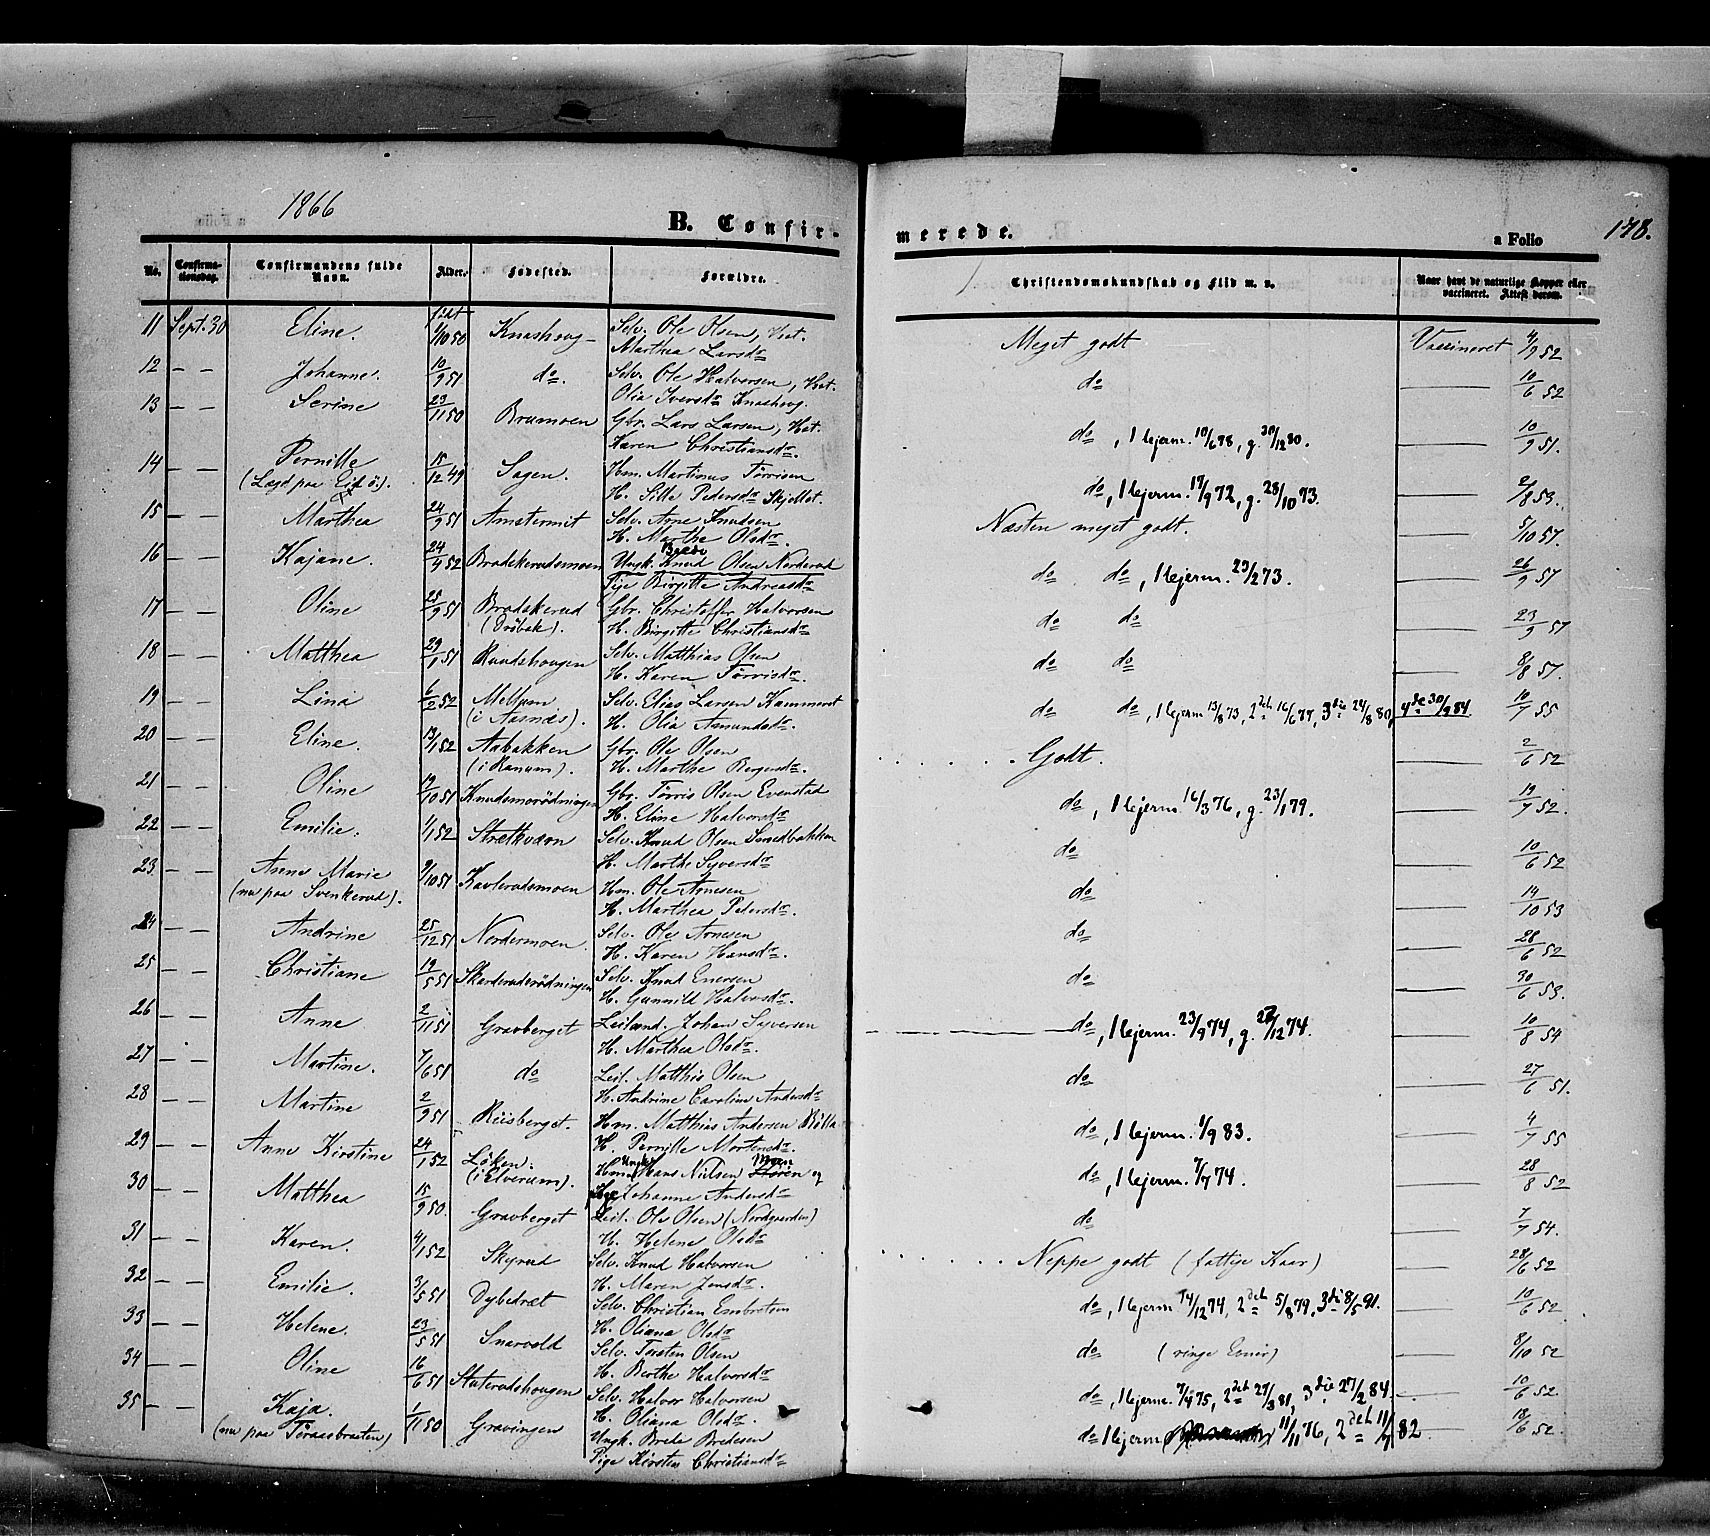 1866
B. Confir-
merede.
a Folio
178.
No.
Confirma-
tionsdag.
Confirmandens fulde
Navn.
Alder.
Fødested.
Forældre.
Christendomskundskab og Flid m. v.
Naar havt de naturlige Kopper eller
vaccineret. Attest derom.
11 Sept. 30 Eline. født 1/10 50 Knashoug Selv. Ole Olsen, Hst. Meget godt Vaccineret 4/9 52
Marthea Larsdr
12 — — Johanne. 10/9 51 do. Selv. Ole Halvorsen, Hst. do — 10/6 52
Olia Iversdr Knashoug.
13 — — Serine 23/11 50 Brumoen Gbr. Lars Larsen, Hst. do, 1 lejerm. 10/6 78, g. 30/12 80. — 10/9 51.
Karen Christiansdr.
14 — — Pernille 15/12 49 Sagen. Hm. Martinus Torrisen do, 1 lejerm. 17/9 72, g. 28/10 73. — 2/8 53.
(Lagd paa Eid ø.) H. Sille Pedersdr Skjellet.
15 — — Marthea 24/9 51 Arnetermit Selv. Arne Knudsen Næsten meget godt. — 5/10 57.
H. Marthe Olsdr.
16 — — Kajane. 24/4 52 Bradskerudsmoen Ungk. Knud Olsen Norderud do do, 1 lejerm. 23/2 73. — 26/9 57
Pige Birgitte Andreasdr
17 — — Oline 25/9 51 Bradskerud Gbr. Christoffer Halvorsen do do — 23/9 57
(Drøbak). H. Birgitte Christiansdr
18 — — Matthea 29/1 51 Ruudshougen Selv. Matthias Olsen do do — 8/8 57.
H. Karen Torrisdr.
19 — — Lina 6/2 52 Mellum Selv. Elias Larsen Kammeret do do, 1 lejerm 13/8 73, 2det 16/6 77, 3die 24/8 80, 4de 30/9 84 10/7 55
(i Aasnæs). H. Olia Amundsdr.
20 — — Eline. 13/1 52 Aabakken Gbr. Ole Olsen Godt. — 2/6 52
(i Ranum). H. Marthe Bergersdr.
21 — — Oline 19/10 51 Knudsmorødningen Gbr. Torris Olsen Evenstad do, 1 lejerm. 16/3 76, g. 23/1 79. — 19/7 52.
H. Eline Halvorsdr
22 — — Emilie. 1/1 52 Strætkværn Selv. Knud Olsen Smedbakken do — 10/6 52
H. Marthe Syversdr
23 — — Anne Marie 9/10 51 Kavlerudsmoen Hm. Ole Arnesen do — 14/10 53
(nu paa Svenkerud). H. Marthea Pedersdr.
24 — — Andrine 25/12 51 Nordermoen. Selv. Ole Arnesen do — 28/6 52
H. Karen Hansdr.
25 — — Christiane 19/5 51 Skarderudsrødningen Selv. Knud Enersen do — 30/6 53.
H. Gunnild Halvorsdr.
26 — — Anne 2/11 51 Gravberget Leilænd. Johan Syversen do, 1 lejerm. 23/9 74, g. 27/12 74. — 10/8 54
H. Marthea Olsdr.
27 — — Martine. 7/6 51 do Leil. Matthis Olsen do — 27/6 51.
H. Andrine Caroline Andersdr
28 — — Martine 2/9 51 Riisberget. Hm. Matthias Andersen Bölla do, 1 lejerm. 1/9 83. — 4/7 55
H. Pernille Mortensdr.
29 — — Anne Kirstine 24/1 52 Löken. Ungk. Hans Nielsen Moen og do, 1 lejerm. 7/7 74. — 28/8 52
(i Elverum). Pige Johanne Andersdr
30 — — Matthea 15/9 50. Gravberget Leil. Ole Olsen (Nordgaarden) do — 7/7 54.
H. Helene Olsdr
31 — — Karen. 4/1 52 Skyrud Selv. Knud Halvorsen Neppe godt (fattige Kaar) — 28/6 52
H. Maren Jensdr.
32 — — Emilie. 3/5 51 Dybedræt Selv. Christian Embretsen do, 1 lejerm 14/12 74, 2det 5/8 79, 3die 8/5 91. — 10/6 52
H. Oliana Olsdr
33 — — Helene. 23/5 51 Snarveld Selv. Torsten Olsen do (ringe Evner) — 8/10 52
H. Berthe Halvorsdr
34 — — Oline 16/6 51 Staterudshougen Selv. Halvor Halvorsen do, 1 lejerm. 7/4 75, 2det 27/3 81, 3die 27/2 84. — 10/6 52.
H. Oliana Olsdr.
35 — — Kaja. 1/11 50 Gravingen Ungk. Brede Bredesen do 1 lejerm 11/11 76, 2det 11/7 82 — 18/6 52.
(nu paa Toraasbraaten) Pige Kirsten Christiansdr